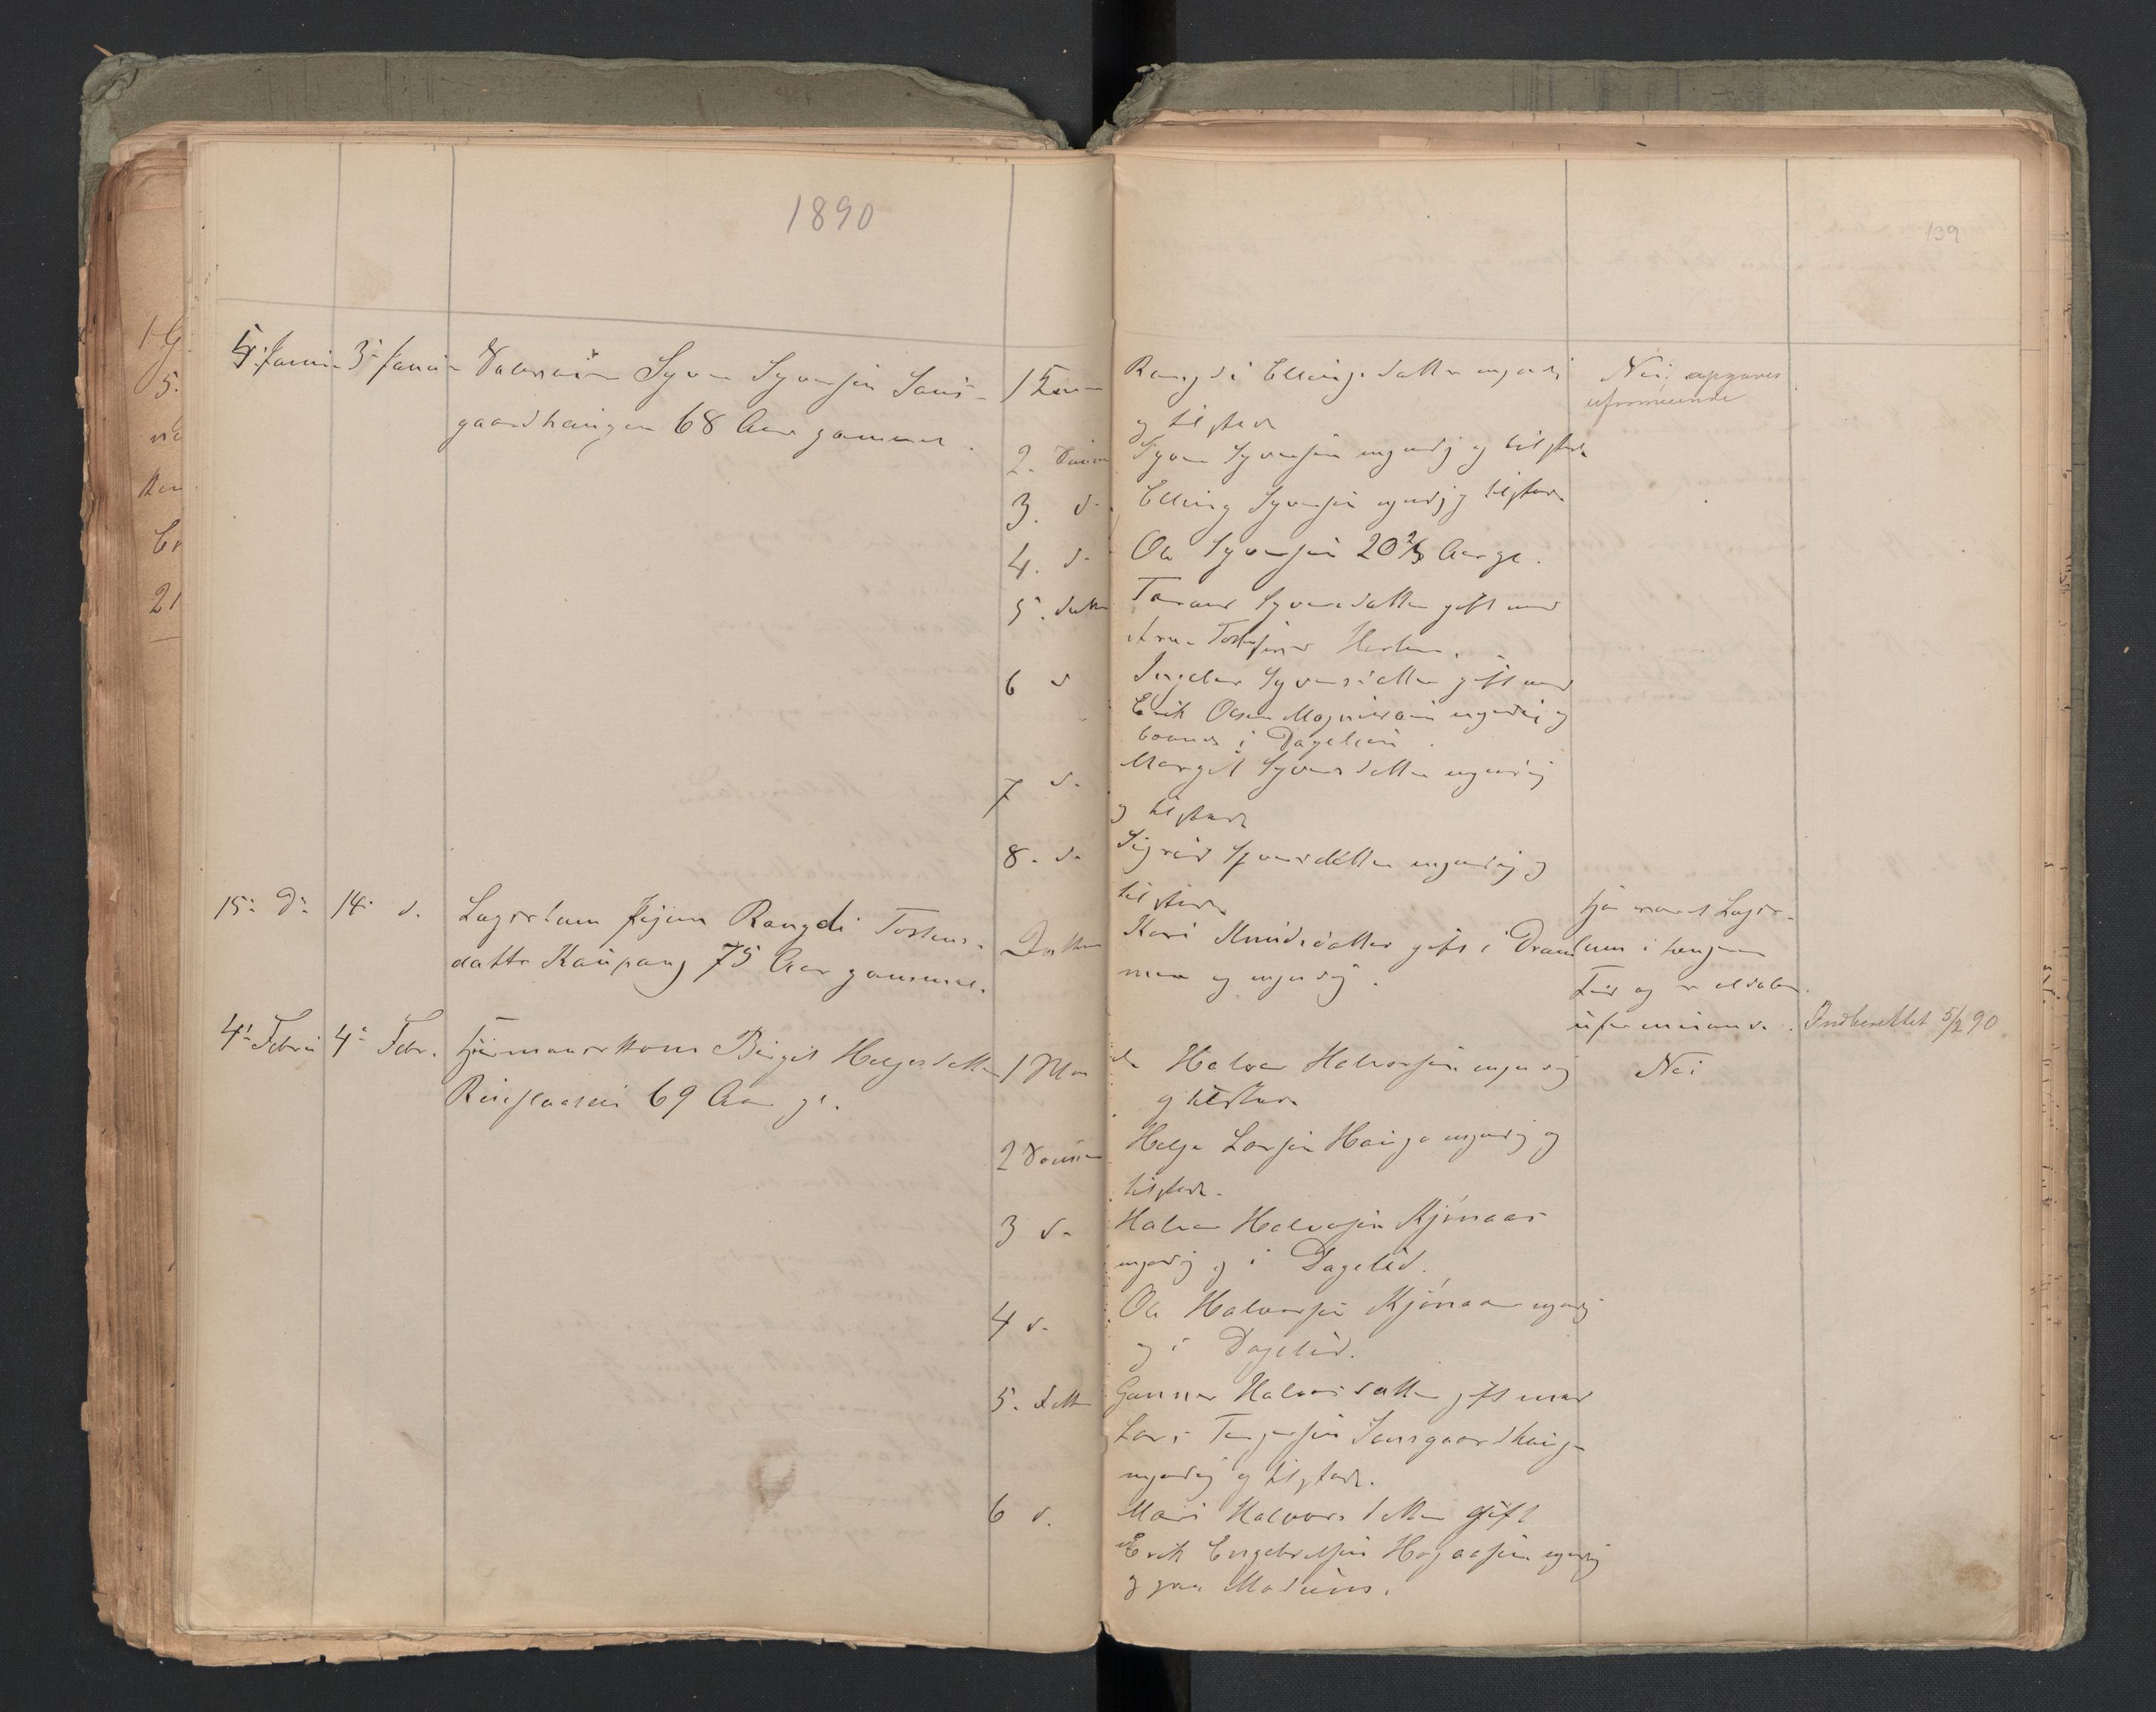 1890
139
5. Januar 3. Januar Syver Syversen Sans-
gaardhaugen 68 Aar gammel.
1 Enke Rangdi Ellingsdatter myndig
og tilstede
Nei, opgaves
uformuende
2. Sønner Syver Syversen myndig og tilstede
3. d. Elling Syversen myndig og tilstede
4. d. Ola Syversen 20 2/3 Aar gl.
5. datter Syversdatter gift med
Arne
6 d Syversdatter gift med
Erik Olsen myndig og
boende i Dagelien
7 d. Margit Syversdatter myndig
og tilstede
8. d. Sigrid Syversdatter myndig og
tilstede
15. d. 14. d. Lægslem Rangdi Torstens-
datter Kaupang 75 Aar gammel.
Datter Kari Knudsdatter gift i Dram-
men og myndig.
har været Lægs-
lem i længere
Tid og er aldeles
uformuende.
Indberettet 5/2 90
4. Febru 4. Febr. Huusmandskone Birgit Helgesdatter
69 Aar gl.
1 Man
den Halvor Halvorsen myndig
og tilstede
Nei
2 Sønner Helge Larsen Hauge myndig og
tilstede.
3 d. Halvor Halvorsen Kjønaas
myndig og i Dagelid.
4 d. Ola Halvorsen Kjønaas myndig
og i Dagelid.
5. datter Gunner Halvorsdatter gift med
Lars Sansgaardhauge
myndig og tilstede.
6 d. Mari Halvorsdatter gift
Erik Engebretsen myndig
og paa Modums.